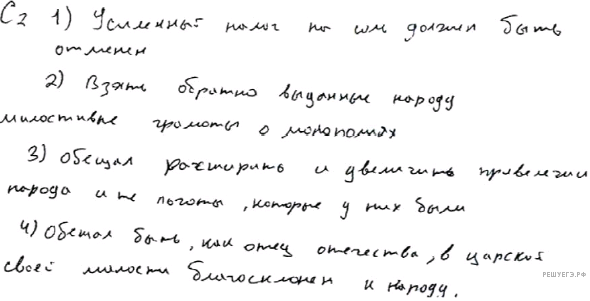 С2 1) Усиленный налог на соль должен быть
отменен
2) Взять обратно выданные народу
милостивые грамоты о монополиях
3) Обещал расширить и увеличить привелегии
народа и те льготы, которые у них были
4) Обещал быть, как отец отечества, в царской
своей милости благосклонен к народу.
РЕШУЕГЭ.РФ